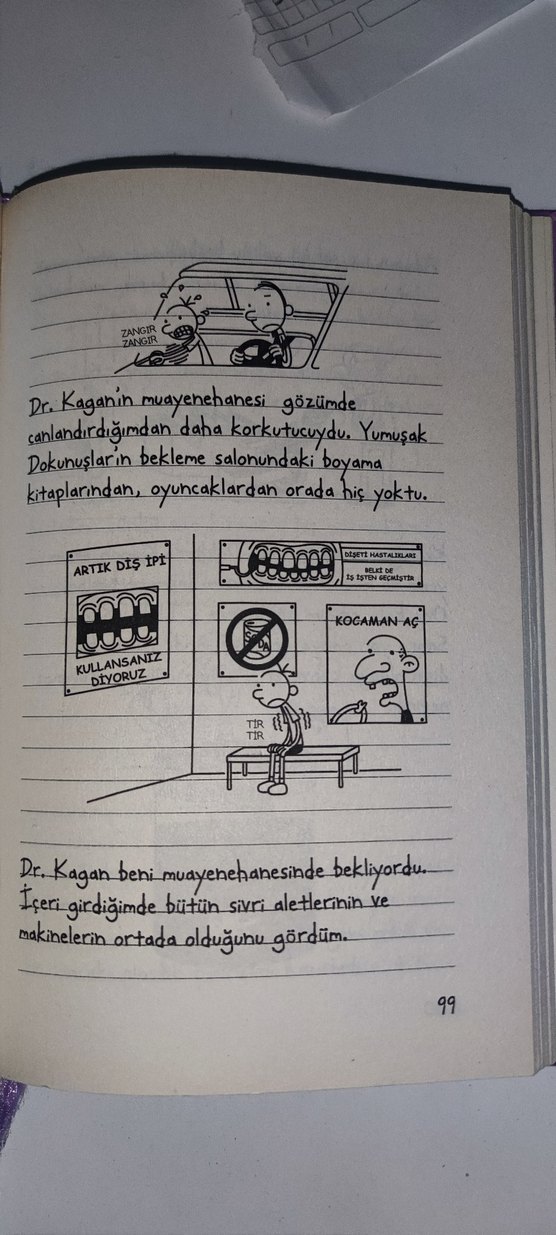 ZANGIR
ZANGIR
Dr. Kagan'ın muayenehanesi gözümde
canlandırdığımdan daha korkutucuydu. Yumuşak
Dokunuşlar'ın bekleme salonundaki boyama
kitaplarından, oyuncaklardan orada hiç yoktu.
ARTIK DİŞ İPİ
KULLANSANIZ
DİYORUZ
DİŞETİ HASTALIKLARI
BELKİ DE
İŞ İŞTEN GEÇMİŞTİR
SODA
KOCAMAN AÇ
TİR
TİR
Dr. Kagan beni muayenehanesinde bekliyordu.
İçeri girdiğimde bütün sivri aletlerinin ve
makinelerin ortada olduğunu gördüm.
99